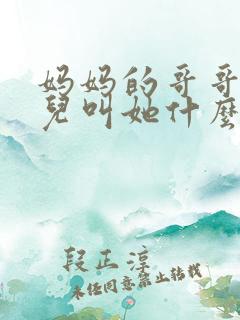 妈妈的哥哥
兒叫她什麼
段正淳
未经同意禁止转载